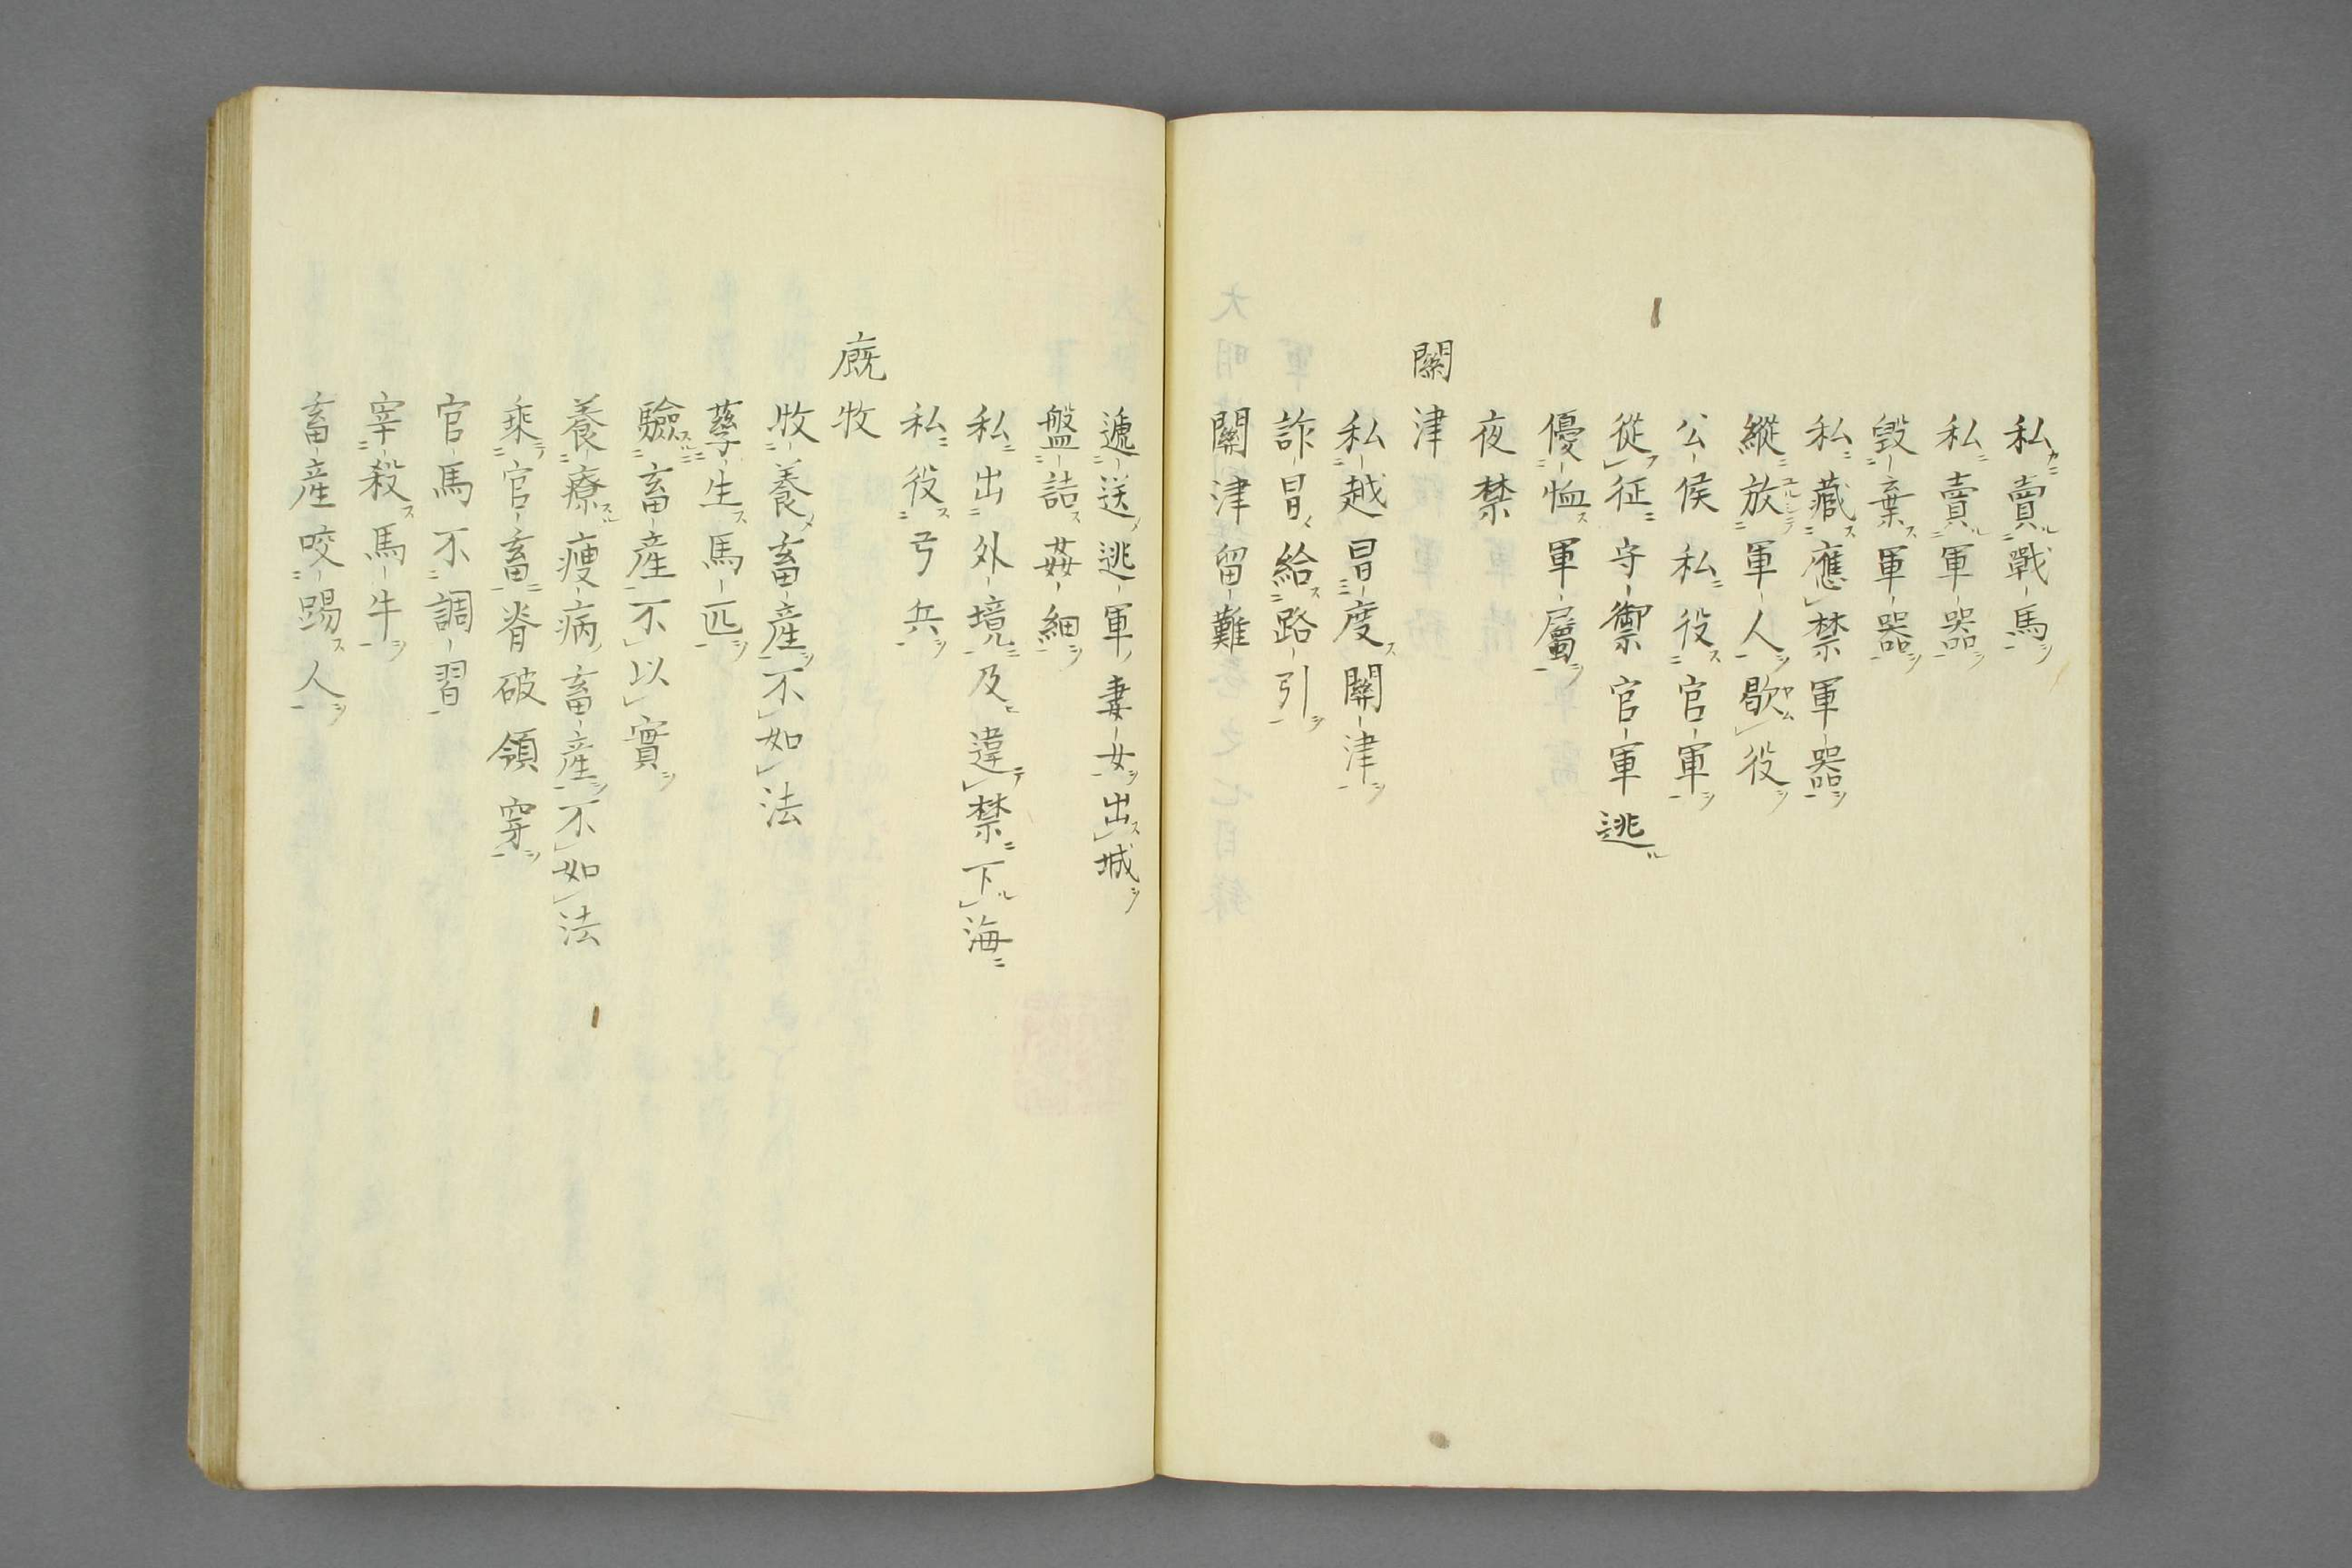 私賣戰馬
私賣軍器
毀棄軍器
私藏應禁軍器
縱放軍人歇役
公侯私役官軍
從征守禦官軍逃
優恤軍屬
夜禁
關津
私越冒度關津
詐冒給路引
關津留難
遞送逃軍妻女出城
盤詰姦細
私出外境及違禁下海
私役弓兵
廐牧
牧養畜產不如法
孳生馬匹
驗畜產不以實
養療瘦病畜產不如法
乘官畜脊破領穿
官馬不調習
宰殺馬牛
畜產咬踢人